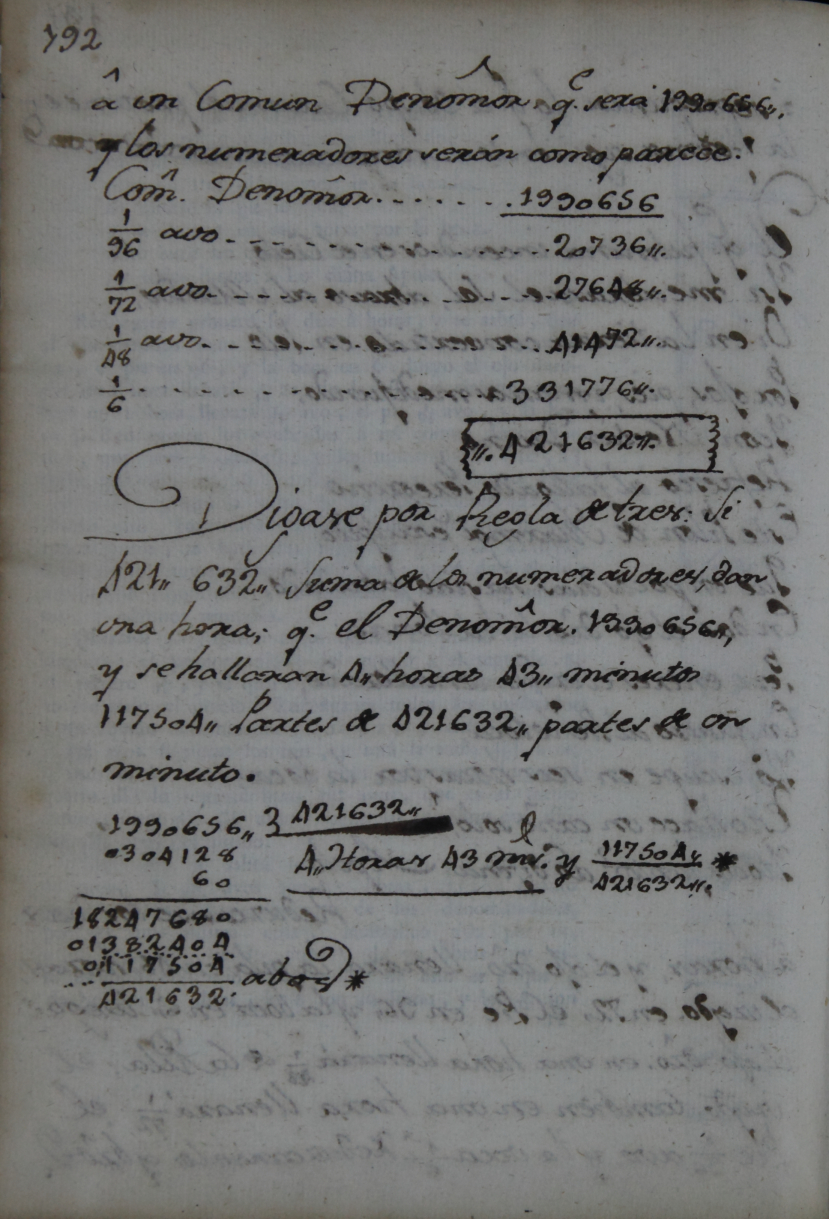 192
â un Comun Denomor̂. q.e sera 1990656,,.
y los numeradores serán como parece.
Com̂. Denomôr. . . . . . . .1990656
1/96 avo. - - - - - . . . . . 20736,,.
1/72 avo. - - - - - . . . . . 27648,,.
1/48 avo. - - - - - . . . . . 41472,,.
1/6 . - - - - - . . . . . 331776,,.
,,. 421632,,.
Digase por Regla de tres: Si
421,, 632,, Suma de los numeradores, dan
una hora; q.e el Denomôr. 1990656,,,
y se hallaran 4,, horas 43,, minutos
117504,, Partes de 421632,, partes de un
minuto.
1990656,, 3 421632,,
0304128 4,, Horas 43 ms. y 117504,,/421632,,. *
60
18247680
01382404
0117504
421632. abos *